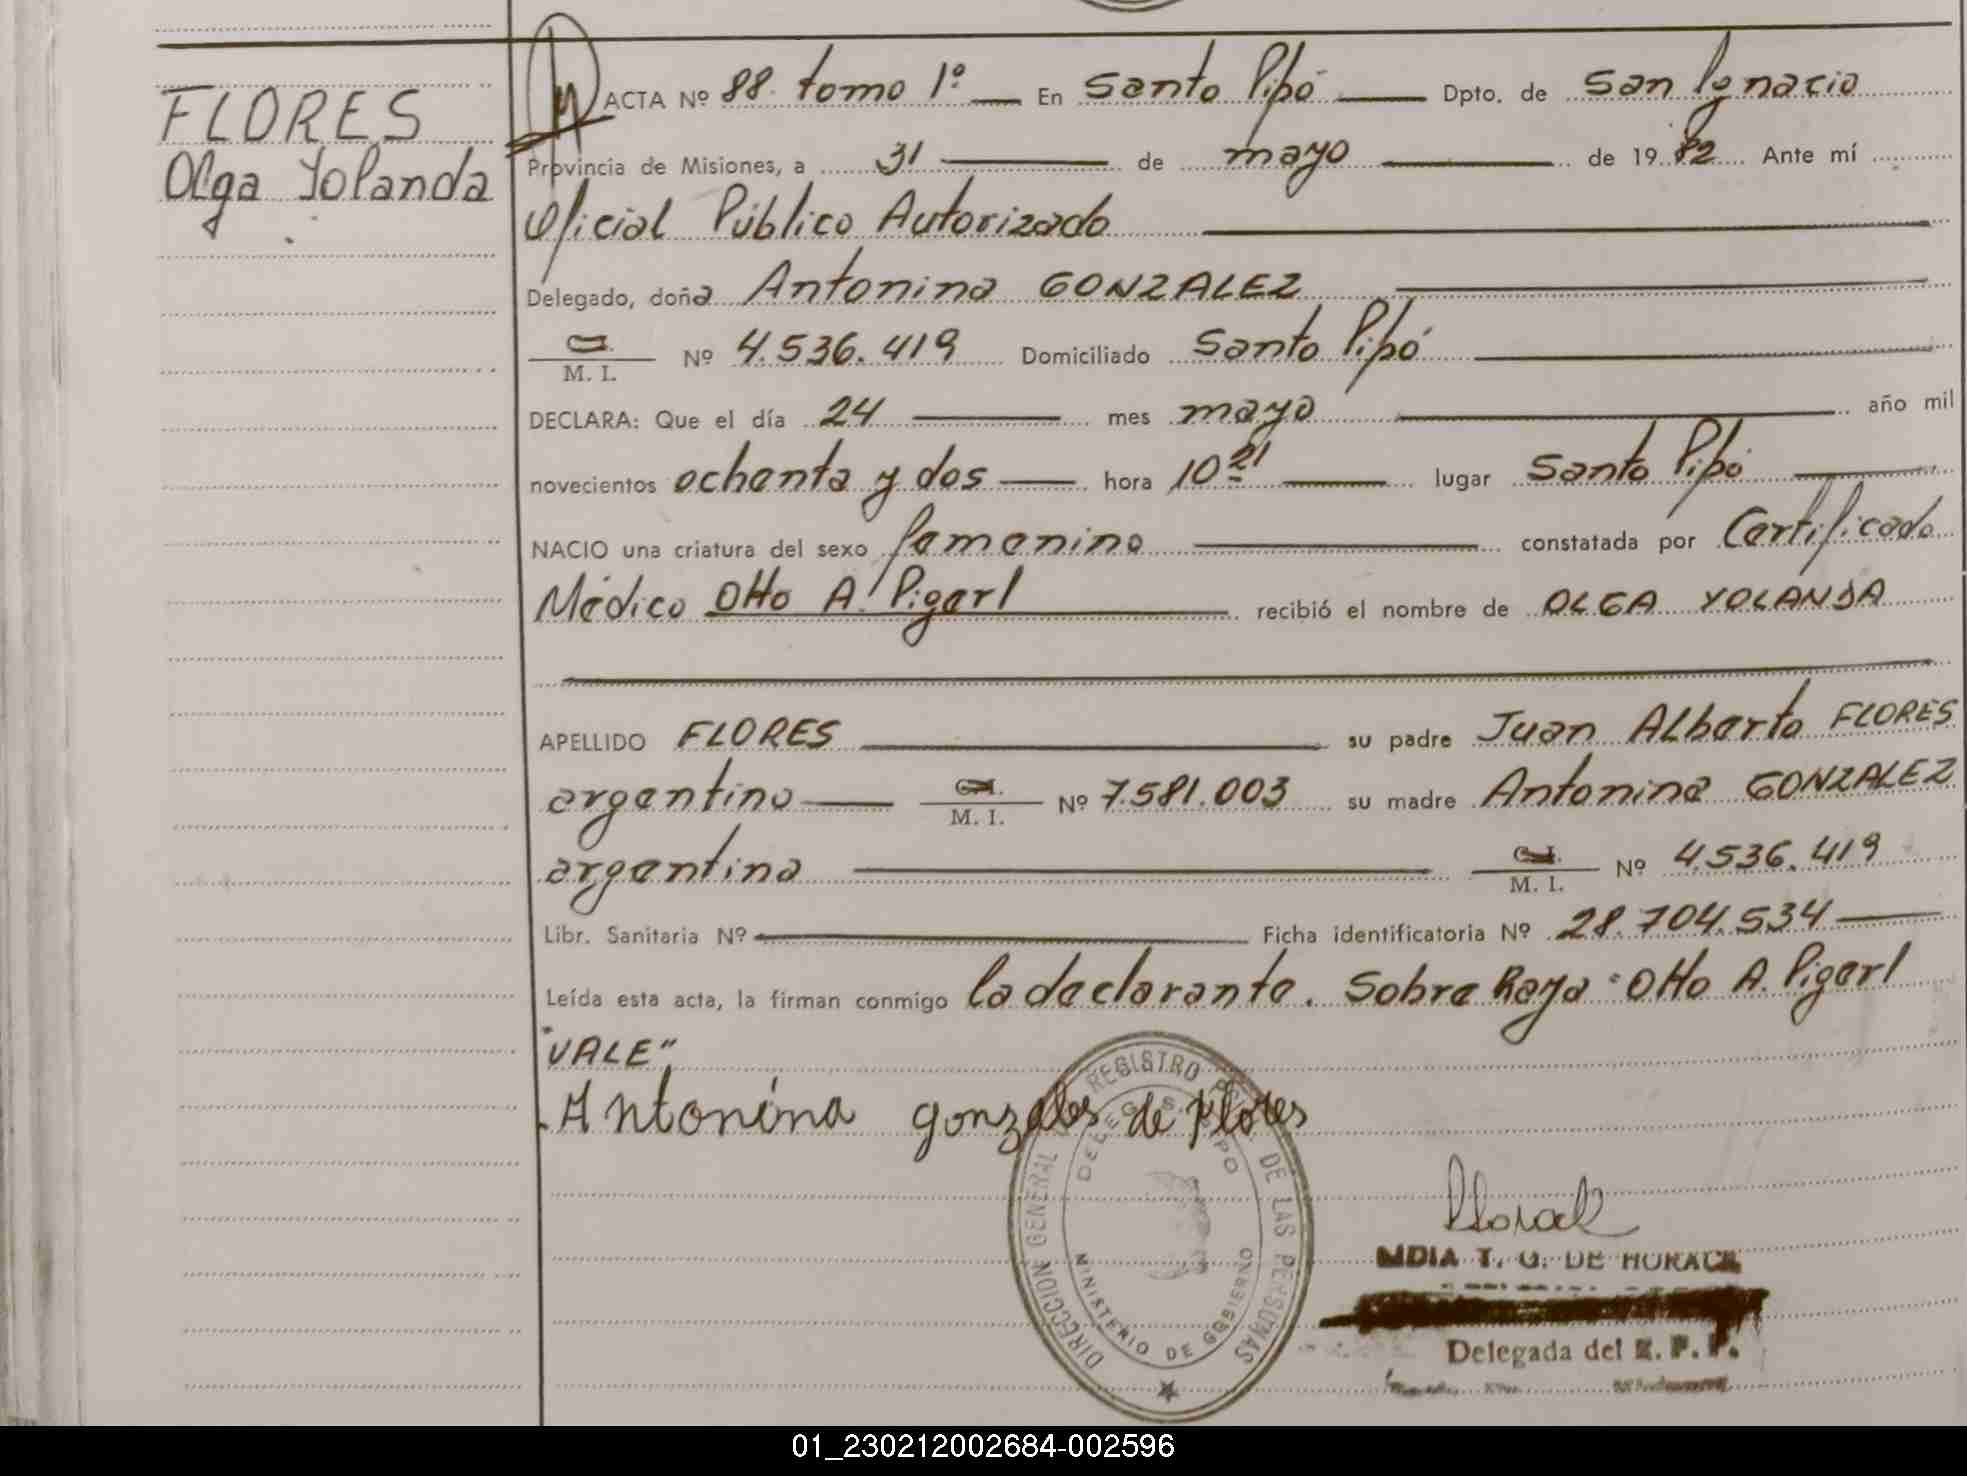 FLORES
Olga Yolanda
ACTA Nº 88 tomo 1º — En Santo Pipó — Dpto. de San Ignacio
Provincia de Misiones, a 31 — de mayo — de 1982 Ante mí
Oficial Público Autorizado —
Delegado, doña Antonina GONZALEZ —
M. I. Nº 4.536.419 Domiciliado Santo Pipó —
DECLARA: Que el día 24 — mes mayo — año mil
novecientos ochenta y dos — hora 10 21 — lugar Santo Pipó —
NACIO una criatura del sexo femenino — constatada por Certificado
Médico Otto A. Pigerl — recibió el nombre de OLGA YOLANDA
APELLIDO FLORES — su padre Juan Alberto FLORES
argentino — M. I. Nº 7.581.003 su madre Antonina GONZALEZ
argentina — M. I. Nº 4.536.419
Libr. Sanitaria Nº — Ficha identificatoria Nº 28.704.534 —
Leída esta acta, la firman conmigo la declarante. Sobre Raya "Otto A. Pigerl
"VALE"
Antonina gonzales de Flores
DIRECCION GENERAL REGISTRO DE LAS PERSONAS
MINISTERIO DE GOBIERNO
T. G. DE HORACK
Delegada del R. P. P.
01_230212002684-002596